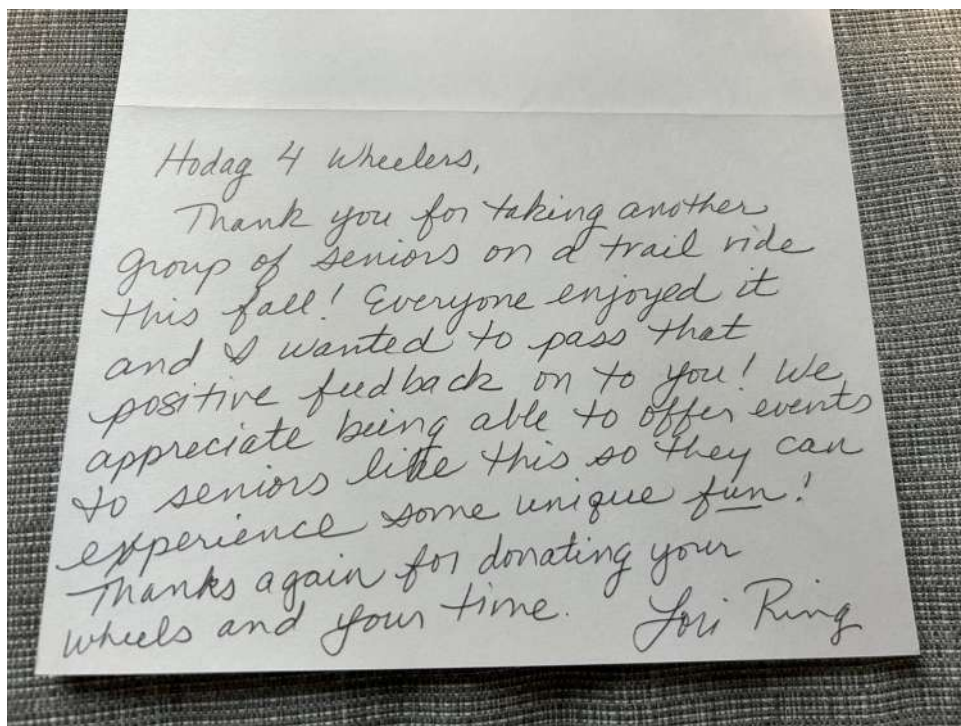 Hodag 4 Wheelers,
Thank you for taking another
group of seniors on a trail ride
this fall! Everyone enjoyed it
and I wanted to pass that
positive feedback on to you! We
appreciate being able to offer events
to seniors like this so they can
experience some unique fun!
Thanks again for donating your
wheels and your time. Lori Ring